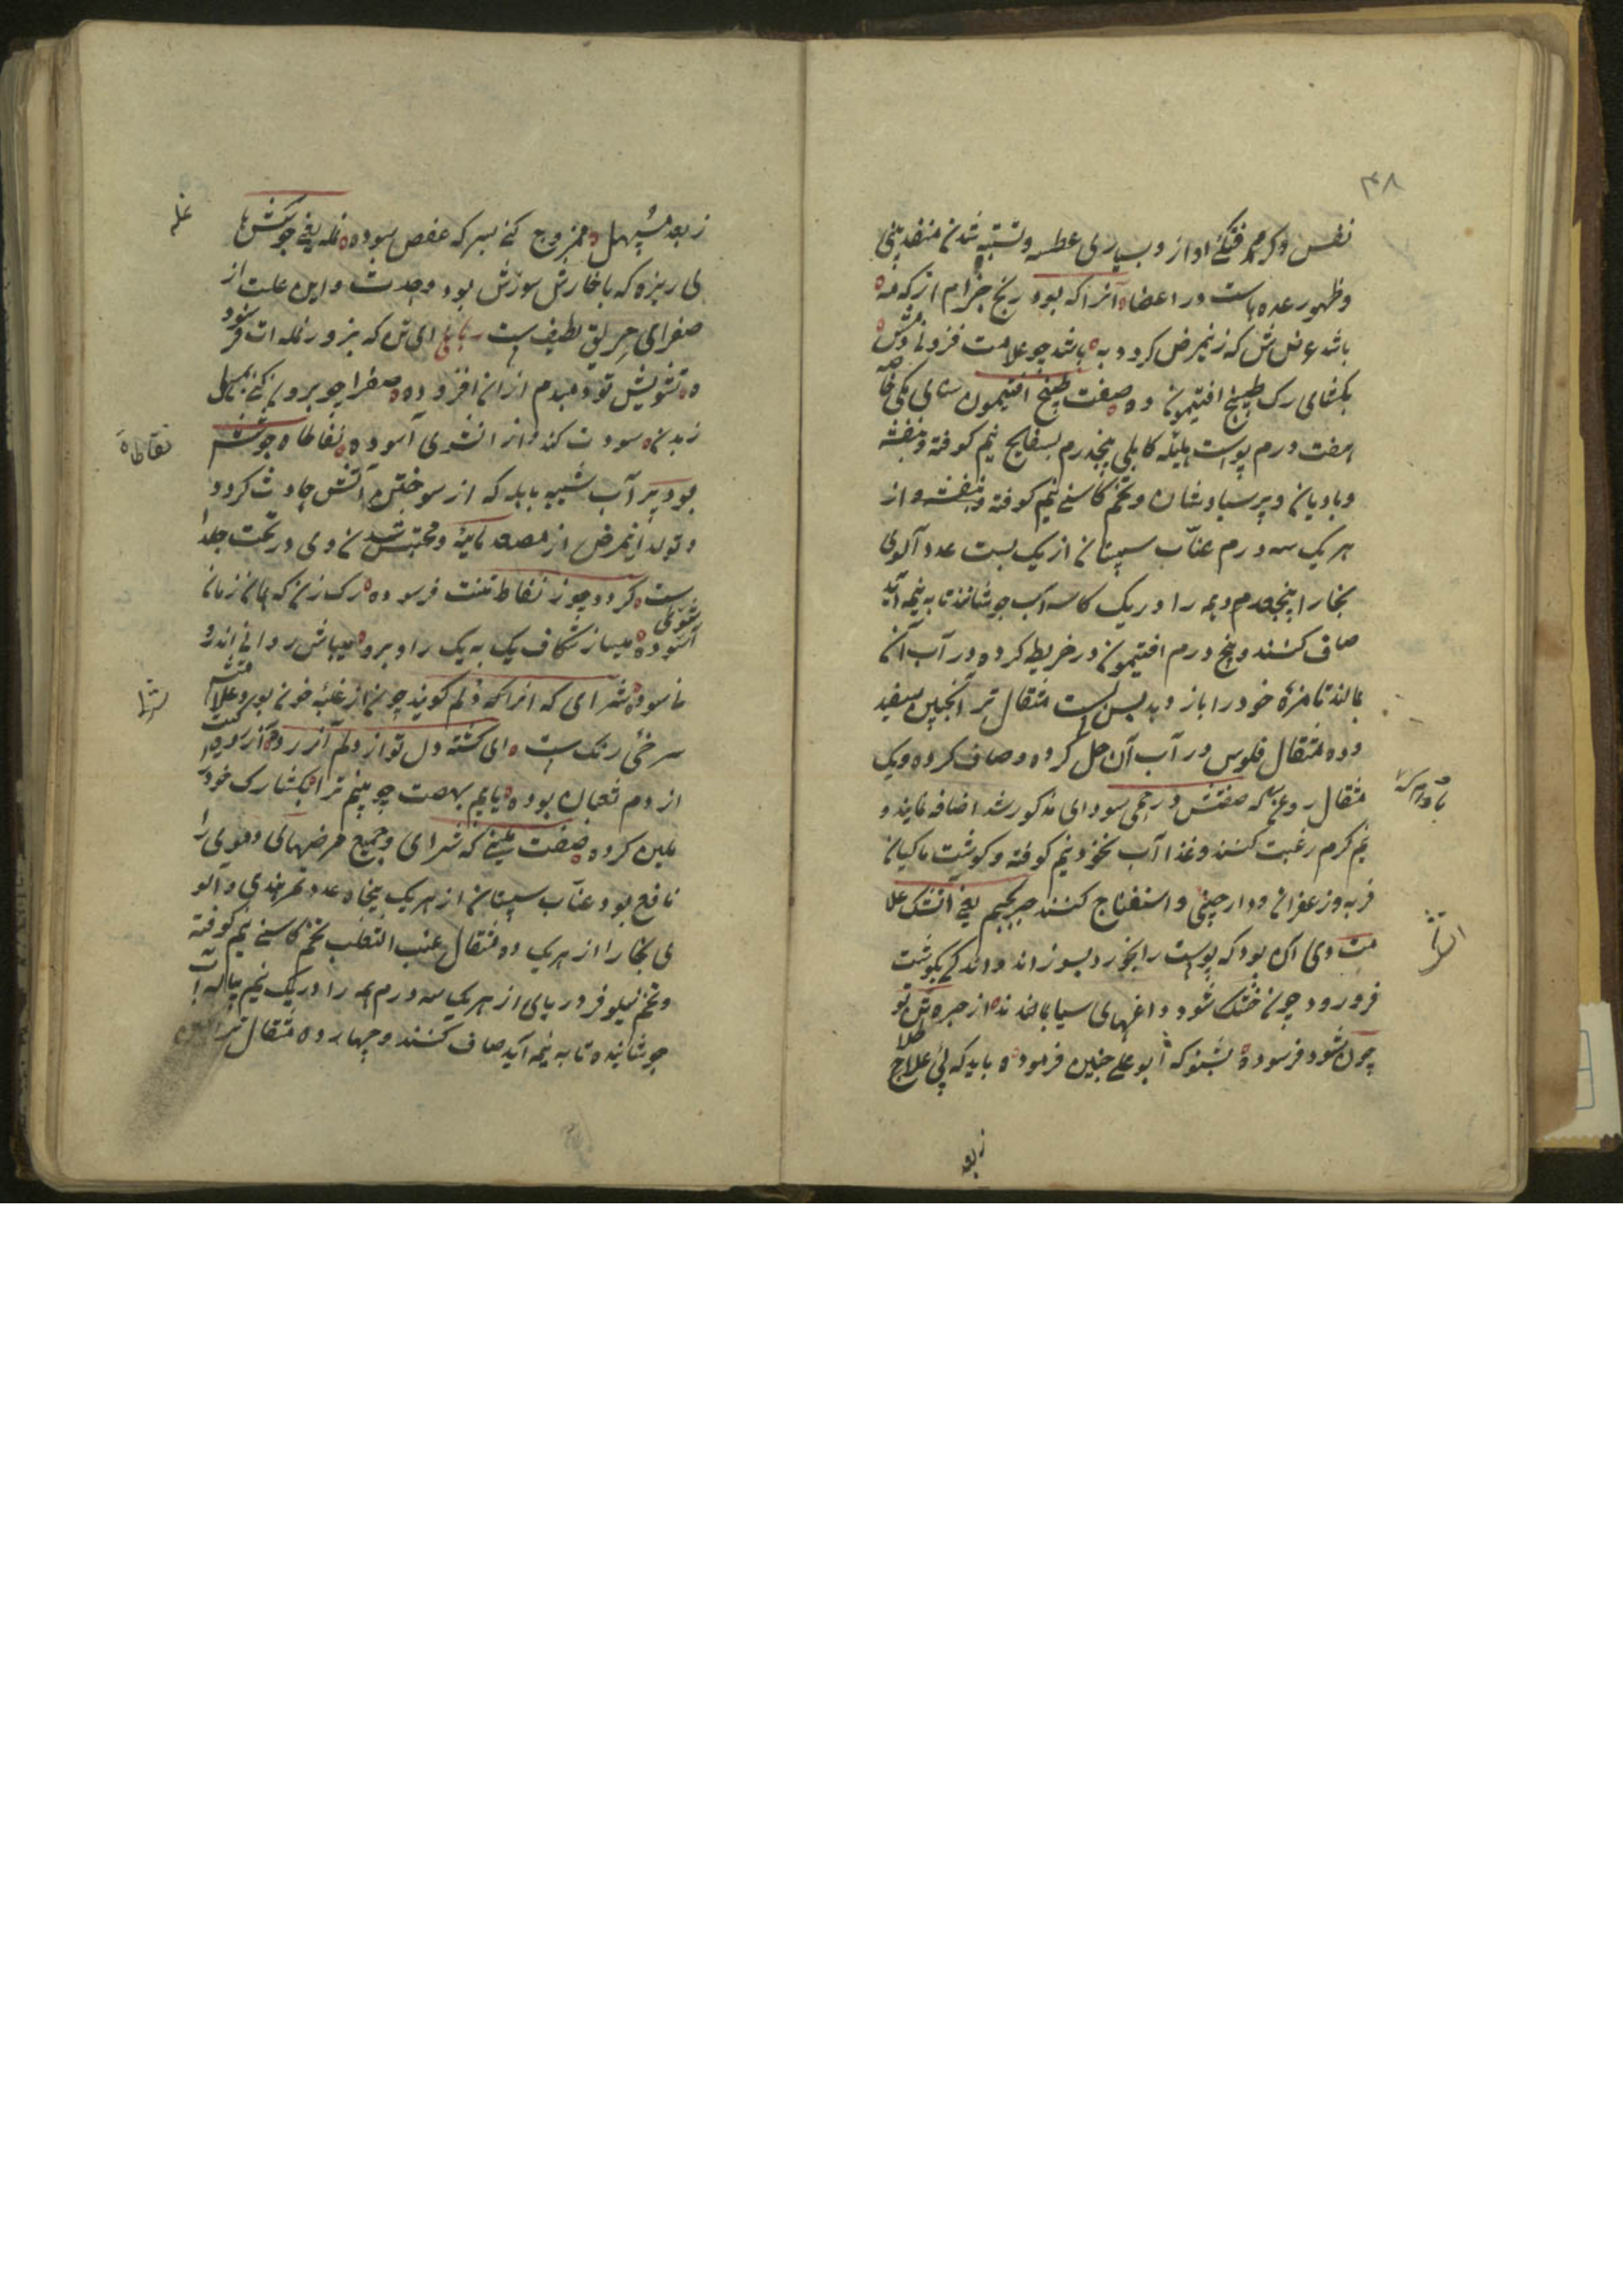 ۴۸
نفس و گرفتگی آواز و بسیاری عطسه و شدن منفذ بینی
و ظهور غده‌ها ست در اعضا آنرا که بود رنج جذام از که مه
باشد عوض که زین مرض گردد به باشد چو علامت فزونی
بگشای رگ طبیخ افتیمون ده صفت طبیخ افتیمون سنای مکی
هفت درم پوست هلیله کابلی پنجدرم بسفایج نیم کوفته و بنفشه
و بادیان و پرسیاوشان و تخم کاسنی نیم کوفته و بنفشه و از
هر یک سه درم عناب سپستان از یک بیست عدد آلوی
بخارا پنجدرم همه را در یک کاسه آب جوشانند تا به نیمه آید
صاف کنند و پنج درم افتیمون در خریطه کرده در آب آن
بمالند تا مزهٔ خود را باز دهد پس بیست مثقال ترانجبین سفید
و ده مثقال فلوس در آب آن حل کرده و صاف کرده و یک
مثقال روغنی که صفتش در حمی سودای مذکور شد اضافه نمایند و
نیم گرم رغبت کنند و غذا آب نخود نیم کوفته و گوشت ماکیان
فربه و زعفران و دارچینی و اسفناج کنند یعنی آتشک علا
مت وی آن بود که پوست را بخورد بسوزاند و اندکی بگوشت
فرو رود چون خشک شود داغهای سیاه بماند از تو
چون شود فرسوده بشنو که ابوعلی چنین فرموده باید که پی علاج
زبعد
زبعد مسهل ممزوج کنی بسرکه عفص سوده نمله یعنی جوششها
ی ریزه که با خارش سوزش بود و حدت و این علت از
صفرای لطیف است رباعی ای تن که بزور نمله ات فرسوده
تشویش تو دمبدم از آن افزوده صفرا چو برون کنی بمسهل
زبدن سودت کند و از آن شوی آسوده نفاطات جوششها
بود پر آب شبیه بآبله که از سوختن آتش حادث گردد
و تولد این مرض از مائیه و محتبس شدن وی در تحت جلد
ست گردد چو ز نفاط تنت فرسوده رگ زن که همان زمان
شوی آسوده میساز شکاف یک به یک را و برو میپاش روانی اندر
ناسوده شرای که آنرا دلم گویند چون از غلبهٔ خون بود علامتش
سرخی رنگ است ای گشته دل تو از دلم آزرده
از دم بوده یابم چو بینم ترا بگشا رگ خود
ملین کرده صفت ملینی که شرای و جمیع مرضهای دموی را
نافع بود عناب سپستان از هر یک پنجاه عدد تمرهندی و آلو
ی بخارا از هر یک ده مثقال عنب الثعلب تخم کاسنی نیم کوفته
و تخم نیلوفر از هر یک سه درم همه را در یک نیم پیاله آب
جوشانیده تا به نیمه آید صاف کنند و چهارده مثقال
نمله
نفاطات
شرا